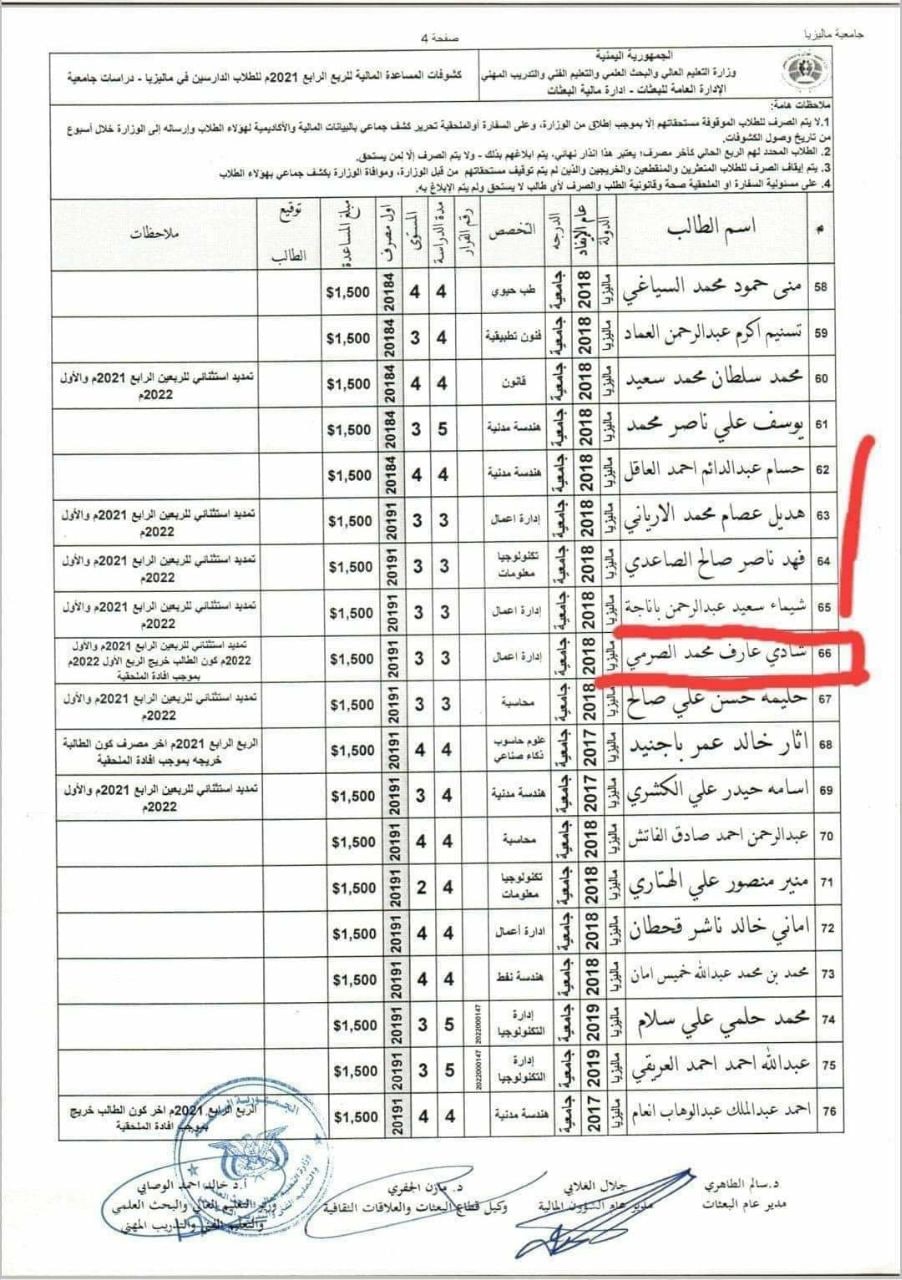 جامعية ماليزيا
صفحة 4
الجمهورية اليمنية
وزارة التعليم العالي والبحث العلمي والتعليم الفني والتدريب المهني
الإدارة العامة للبعثات - ادارة مالية البعثات
كشوفات المساعدة المالية للربع الرابع 2021م للطلاب الدارسين في ماليزيا - دراسات جامعية
ملاحظات هامة:
1. لا يتم الصرف للطلاب الموقوفة مستحقاتهم إلا بموجب إطلاق من الوزارة، وعلى السفارة أوالملحقية تحرير كشف جماعي بالبيانات المالية والأكاديمية لهؤلاء الطلاب وإرساله إلى الوزارة خلال أسبوع
من تاريخ وصول الكشوفات.
2. الطلاب المحدد لهم الربع الحالي كآخر مصرف؛ يعتبر هذا إنذار نهائي، يتم ابلاغهم بذلك - ولا يتم الصرف إلا لمن يستحق.
3. يتم إيقاف الصرف للطلاب المتعثرين والمنقطعين والخريجين والذين لم يتم توقيف مستحقاتهم من قبل الوزارة، وموافاة الوزارة بكشف جماعي بهؤلاء الطلاب
4. على مسئولية السفارة او الملحقية صحة وقانونية الطلب والصرف لأي طالب لا يستحق ولم يتم الإبلاغ به.
# اسم الطالب الدولة عام الإيفاد الدرجه التخصص رقم القرار مدة الدراسة المستوى اول مصرف مبلغ المساعدة توقيع الطالب ملاحظات
58 منى حمود محمد السياغي ماليزيا 2018 جامعية طب حيوي 4 4 20184 $1,500
59 تسنيم اكرم عبدالرحمن العماد ماليزيا 2018 جامعية فنون تطبيقية 4 3 20184 $1,500
60 محمد سلطان محمد سعيد ماليزيا 2018 جامعية قانون 4 4 20184 $1,500 تمديد استثنائي للربعين الرابع 2021م والأول 2022م
61 يوسف علي ناصر محمد ماليزيا 2018 جامعية هندسة مدنية 5 3 20184 $1,500
62 حسام عبدالدائم احمد العاقل ماليزيا 2018 جامعية هندسة مدنية 4 4 20184 $1,500
63 هديل عصام محمد الارياني ماليزيا 2018 جامعية إدارة اعمال 3 3 20191 $1,500 تمديد استثنائي للربعين الرابع 2021م والأول 2022م
64 فهد ناصر صالح الصاعدي ماليزيا 2018 جامعية تكنولوجيا معلومات 3 3 20191 $1,500 تمديد استثنائي للربعين الرابع 2021م والأول 2022م
65 شيماء سعيد عبدالرحمن باناجة ماليزيا 2018 جامعية إدارة اعمال 3 3 20191 $1,500 تمديد استثنائي للربعين الرابع 2021م والأول 2022م
66 شادي عارف محمد الصرمي ماليزيا 2018 جامعية إدارة اعمال 3 3 20191 $1,500 تمديد استثنائي للربعين الرابع 2021م والأول 2022م كون الطالب خريج الربع الأول 2022م بموجب افادة الملحقية
67 حليمه حسن علي صالح ماليزيا 2018 جامعية محاسبة 3 3 20191 $1,500 تمديد استثنائي للربعين الرابع 2021م والأول 2022م
68 اثار خالد عمر باجنيد ماليزيا 2017 جامعية علوم حاسوب ذكاء صناعي 4 4 20191 $1,500 الربع الرابع 2021م اخر مصرف كون الطالبة خريجه بموجب افادة الملحقية
69 اسامه حيدر علي الكشري ماليزيا 2017 جامعية هندسة مدنية 4 3 20191 $1,500 تمديد استثنائي للربعين الرابع 2021م والأول 2022م
70 عبدالرحمن احمد صادق الفاتش ماليزيا 2018 جامعية محاسبة 4 4 20191 $1,500
71 منير منصور علي الهتاري ماليزيا 2018 جامعية تكنولوجيا معلومات 4 2 20191 $1,500
72 اماني خالد ناشر قحطان ماليزيا 2018 جامعية ادارة أعمال 4 4 20191 $1,500
73 محمد بن محمد عبدالله خميس امان ماليزيا 2018 جامعية هندسة نفط 4 4 20191 $1,500
74 محمد حلمي علي سلام ماليزيا 2019 جامعية إدارة التكنولوجيا 2022000147 5 3 20191 $1,500
75 عبدالله احمد احمد العريقي ماليزيا 2019 جامعية إدارة التكنولوجيا 2022000147 5 3 20191 $1,500
76 احمد عبدالملك عبدالوهاب انعام ماليزيا 2017 جامعية هندسة مدنية 4 4 20191 $1,500 الربع الرابع 2021م اخر كون الطالب خريج بموجب افادة الملحقية
د.سالم الطاهري
مدير عام البعثات
جلال الغلابي
مدير عام الشؤون المالية
د. مازن الجفري
وكيل قطاع البعثات والعلاقات الثقافية
أ.د خالد احمد الوصابي
وزير التعليم العالي والبحث العلمي
والتعليم الفني والتدريب المهني